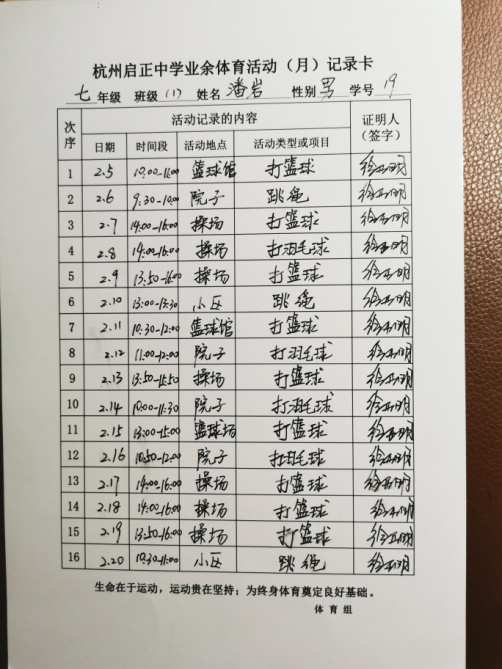 杭州启正中学业余体育活动（月）记录卡
七 年级 班级 (1) 姓名 潘岩 性别 男 学号 19
次序 活动记录的内容 证明人（签字）
日期 时间段 活动地点 活动类型或项目
1 2.5 10:00-11:00 篮球馆 打篮球
2 2.6 9:30-10:00 院子 跳绳
3 2.7 14:00-16:00 操场 打篮球
4 2.8 14:00-16:00 操场 打羽毛球
5 2.9 13:50-16:00 操场 打篮球
6 2.10 13:00-13:30 小区 跳绳
7 2.11 10:30-12:00 篮球馆 打篮球
8 2.12 11:00-12:00 院子 打羽毛球
9 2.13 13:50-15:50 操场 打篮球
10 2.14 10:00-11:30 院子 打羽毛球
11 2.15 13:00-15:00 篮球场 打篮球
12 2.16 10:50-12:00 院子 打羽毛球
13 2.17 14:00-16:00 操场 打篮球
14 2.18 14:00-16:00 操场 打篮球
15 2.19 13:50-16:00 操场 打篮球
16 2.20 10:30-11:00 小区 跳绳
生命在于运动，运动贵在坚持；为终身体育奠定良好基础。
体育组